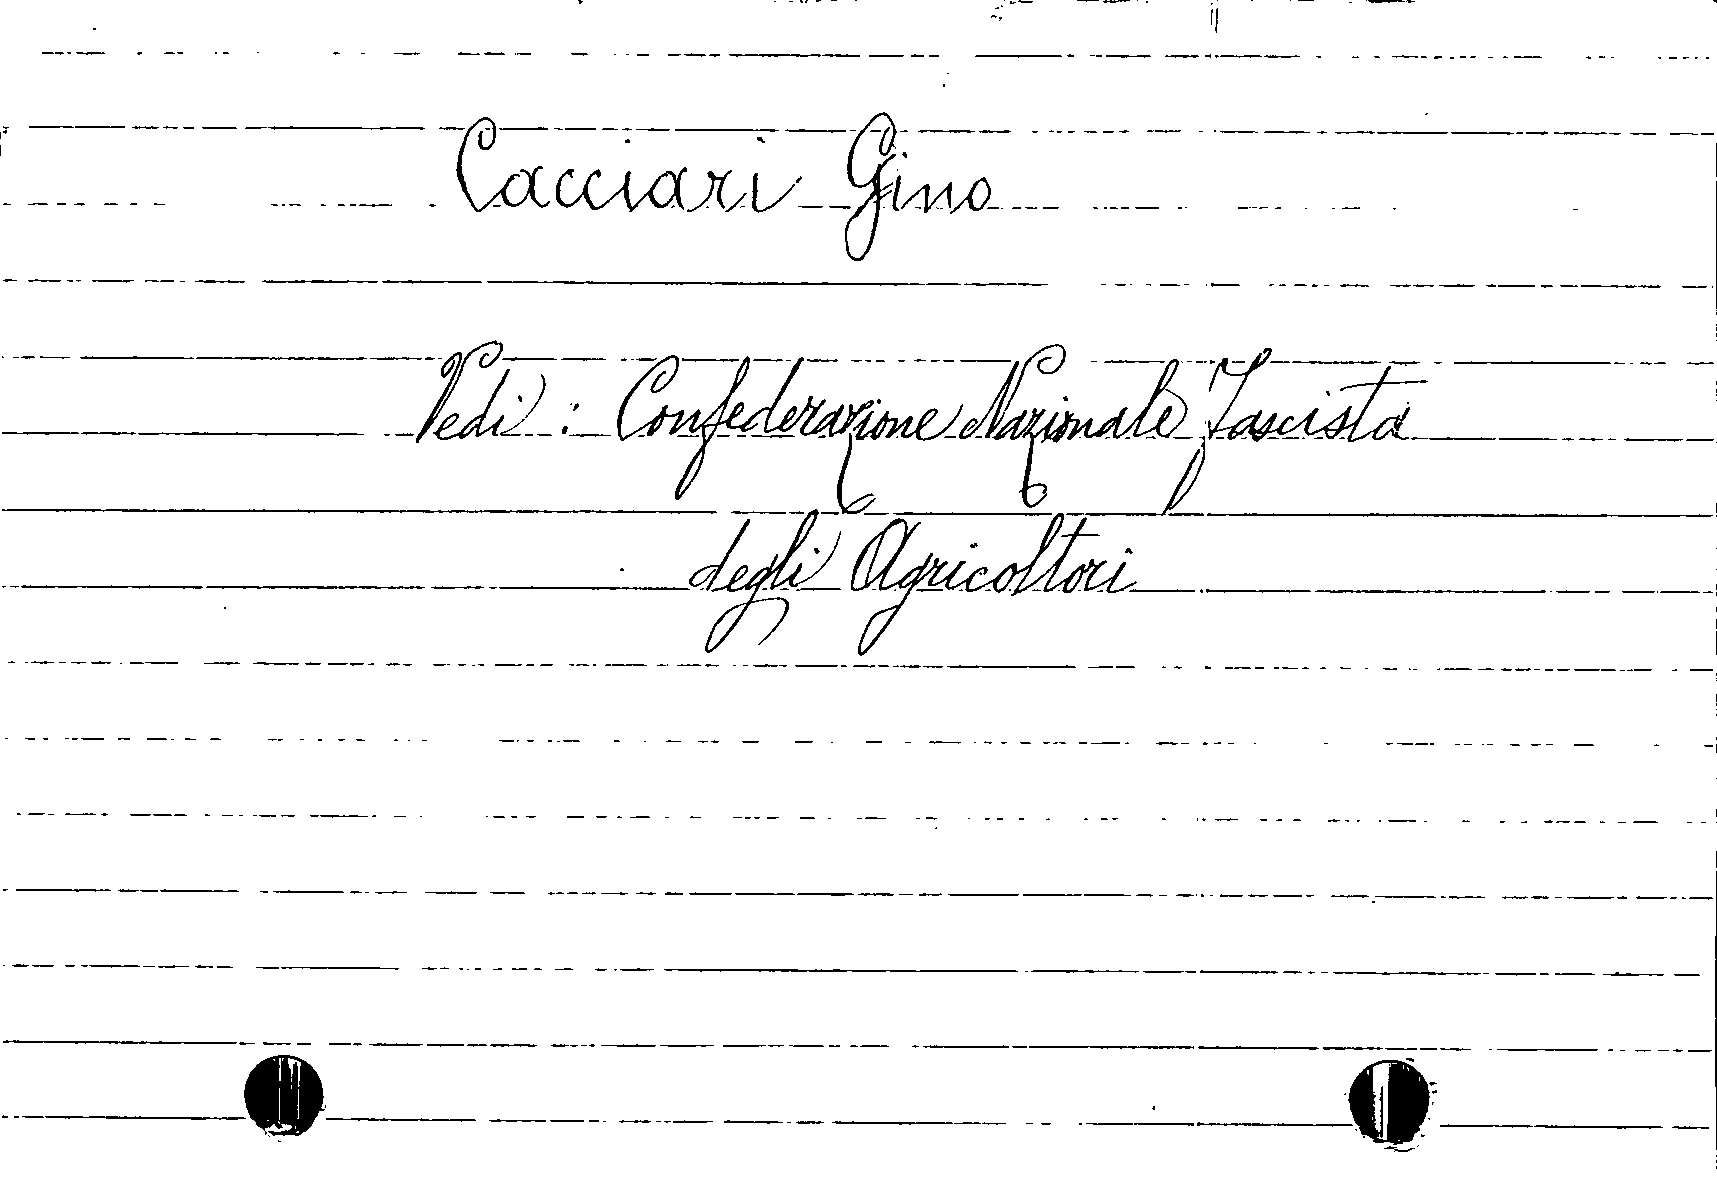 Cacciari Gino
Vedi : Confederazione Nazionale Fascista
degli Agricoltori